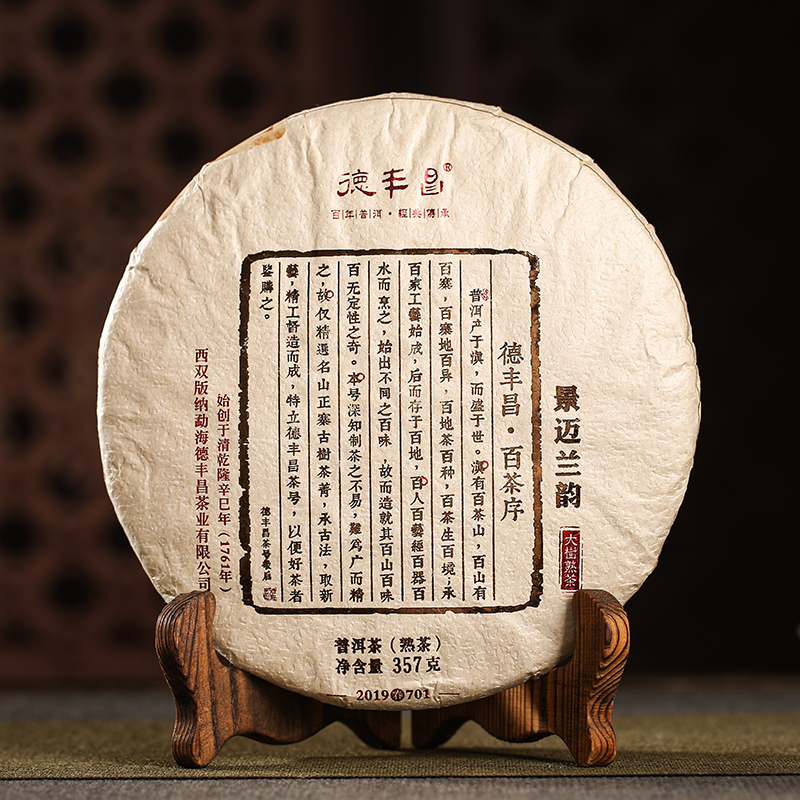 德丰昌®
百年普洱·经典傳承
德丰昌·百茶序
普洱产于滇，而盛于世。滇有百茶山，百山有
百寨，百寨地百异，百地茶百种，百茶生百境；承
百家工藝始成，后而存于百地，百人百藝經百器百
水而烹之，始出不同之百味，故而造就其百山百味
百无定性之奇。本号深知制茶之不易，難爲广而精
之，故仅精選名山正寨古樹茶菁，承古法，取新
藝，精工督造而成，特立德丰昌茶号，以便好茶者
鉴購之。
德丰昌茶号敬启
景迈兰韵
大樹熟茶
始创于清乾隆辛巳年（1761年）
西双版纳勐海德丰昌茶业有限公司
普洱茶（熟茶）
净含量 357克
2019春701